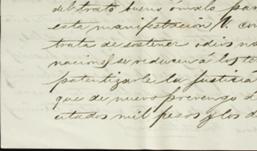 del trato bueno o malo par
esta manifestación y con
trata de sostener odios na
nacion, se reducen á los te
patentizarle la justicia
que de nuevo prevengo á
cutados mil pesos y los d